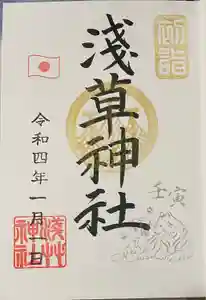 初詣
浅草神社
壬寅
令和四年一月一日
浅草神社